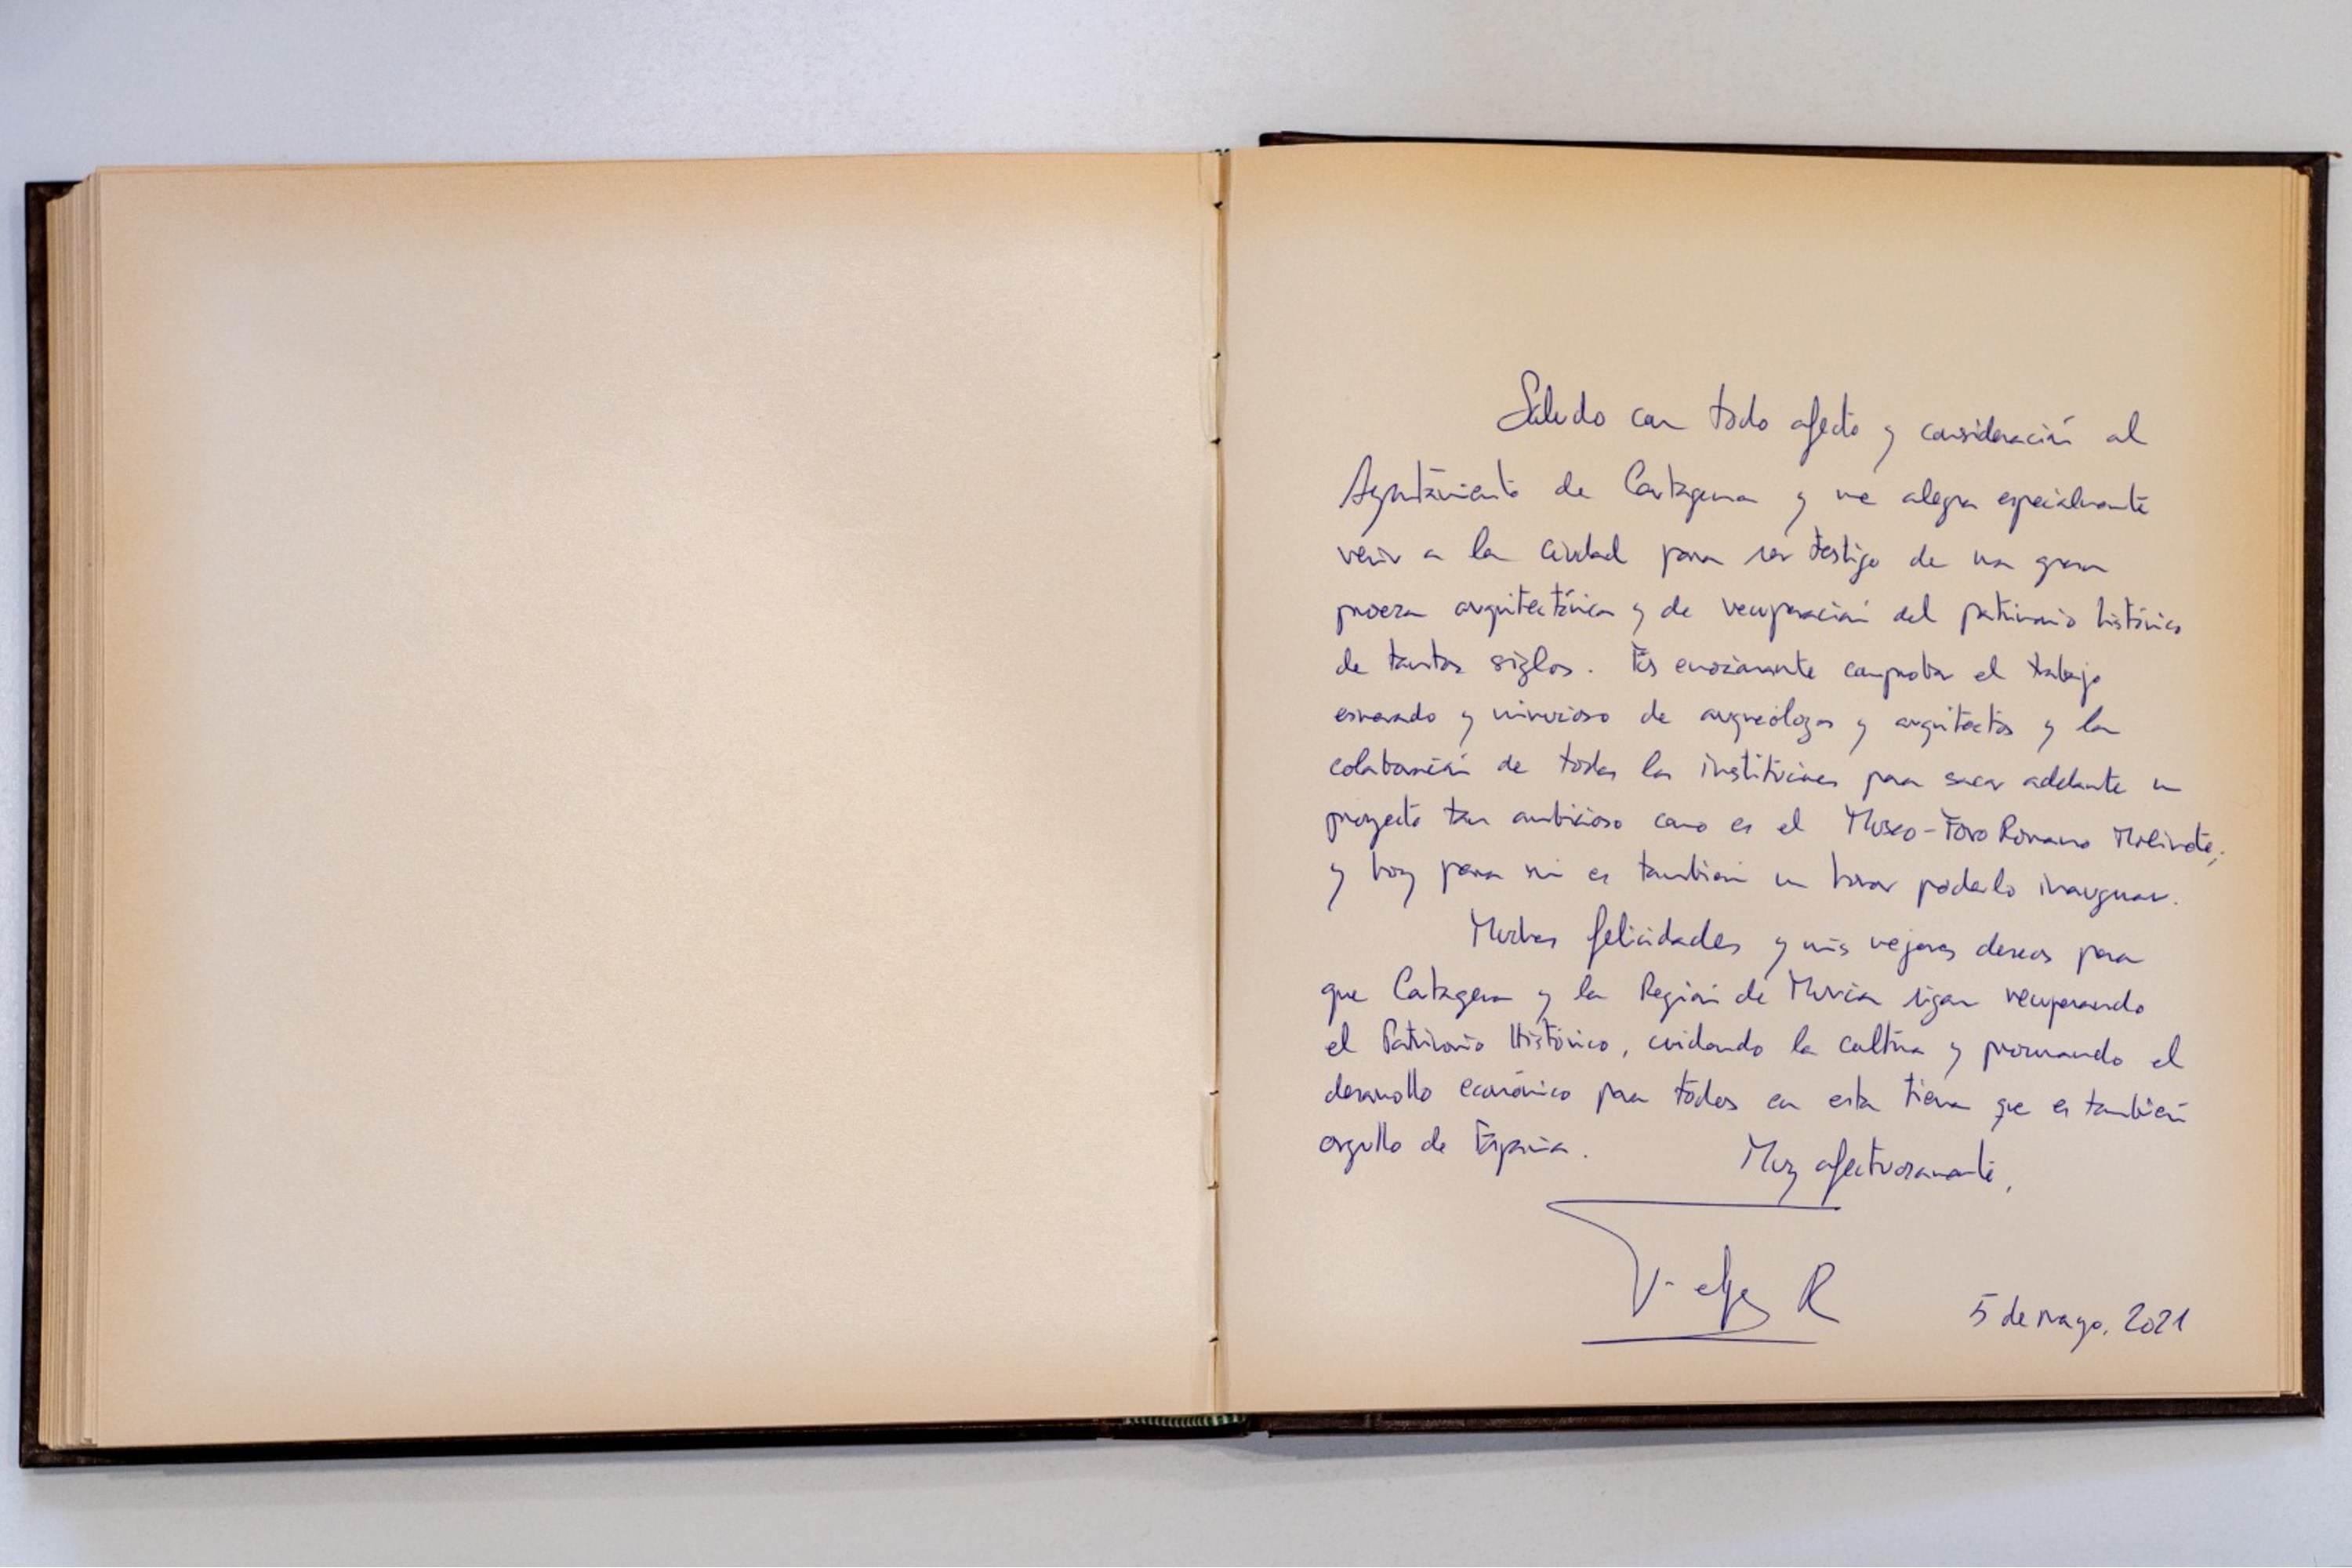 Saludo con todo afecto y consideración al
Ayuntamiento de Cartagena y me alegra especialmente
venir a la ciudad para ser testigo de una gran
proeza arquitectónica y de recuperación del patrimonio histórico
de tantos siglos. Es emocionante comprobar el trabajo
esmerado y minucioso de arqueólogos y arquitectos y la
colaboración de todas las instituciones para sacar adelante un
proyecto tan ambicioso como es el Museo-Foro Romano Molinete;
y hoy para mi es también un honor poderlo inaugurar.
Muchas felicidades y mis mejores deseos para
que Cartagena y la Región de Murcia sigan recuperando
el Patrimonio Histórico, cuidando la cultura y promoviendo el
desarrollo económico para todos en esta tierra que es también
orgullo de España. Muy afectuosamente,
Felipe R
5 de mayo, 2021